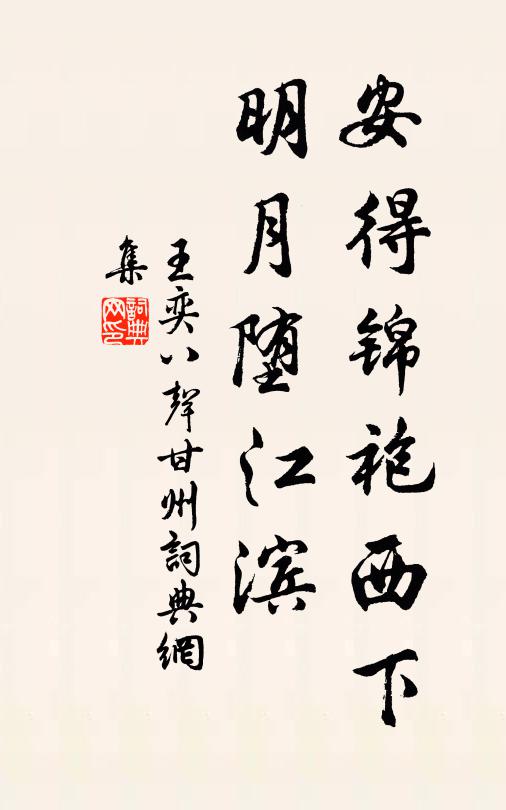 安得锦袍西下
明月堕江滨
王奕八聲甘州詞典網
集
詞典網印